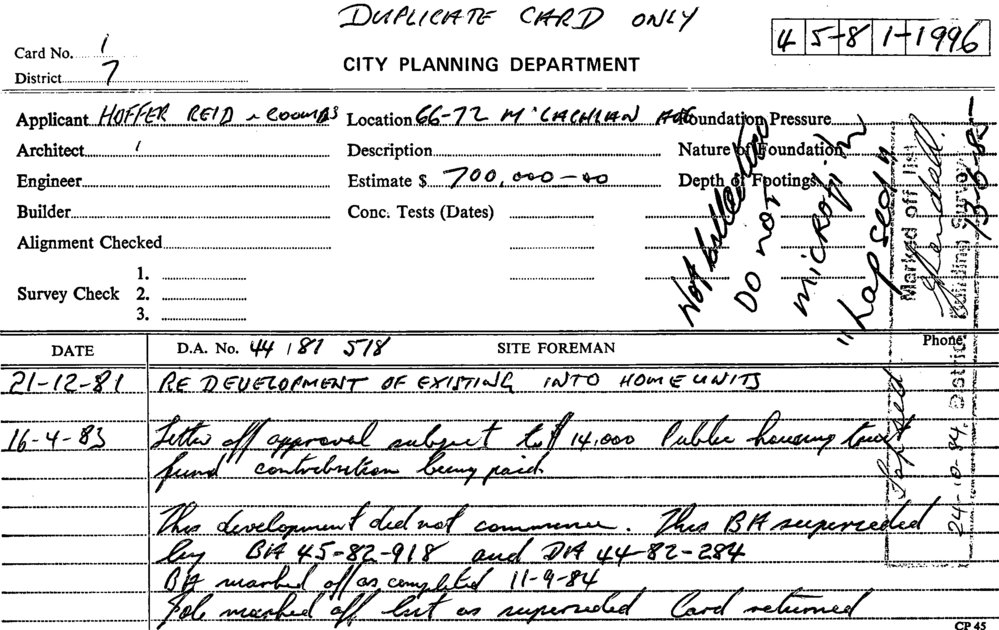 DUPLICATE CARD ONLY
45-81-1996
Card No. 1
District 7
CITY PLANNING DEPARTMENT
Applicant HOFFER REID & COOMBS Location 66-72 McLACHLAN AVE Foundation Pressure
Architect Description Nature of Foundation
Engineer Estimate $ 700,000-00 Depth of Footings
Builder Conc. Tests (Dates)
Alignment Checked
1.
Survey Check 2.
3.
Not bulleted
DO NOT
microfilm
"Lapsed"
Marked off list
13-6-85
24-10-84 District Building Survey
Lapsed
DATE D.A. No. 44 81 518 SITE FOREMAN Phone
21-12-81 RE DEVELOPMENT OF EXISTING INTO HOME UNITS
16-4-83 Letter off approval subject to $14,000 Public housing trust
fund contribution being paid
This development did not commence. This BA superceded
by BA 45-82-918 and DA 44-82-284
BA marked off as completed 11-9-84
Job marked off list as superceded Card returned
CP 45